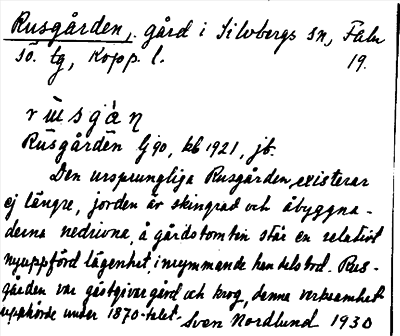 Rusgården, gård i Silvbergs sn, Falu
sö. tg, Kopp. l. 19.
rūsgàn̥
Rusgården Gj 90, kb 1921, jb.
Den ursprungliga Rusgården existerar
ej längre, jorden är skingrad och åbyggna-
derna nedrivna, å gårdstomten står en relativt
nyuppförd lägenhet, inrymmande handelsbod. Rus-
gården var gästgivargård och krog, denna verksamhet
upphörde under 1870-talet. Sven Nordlund 1930